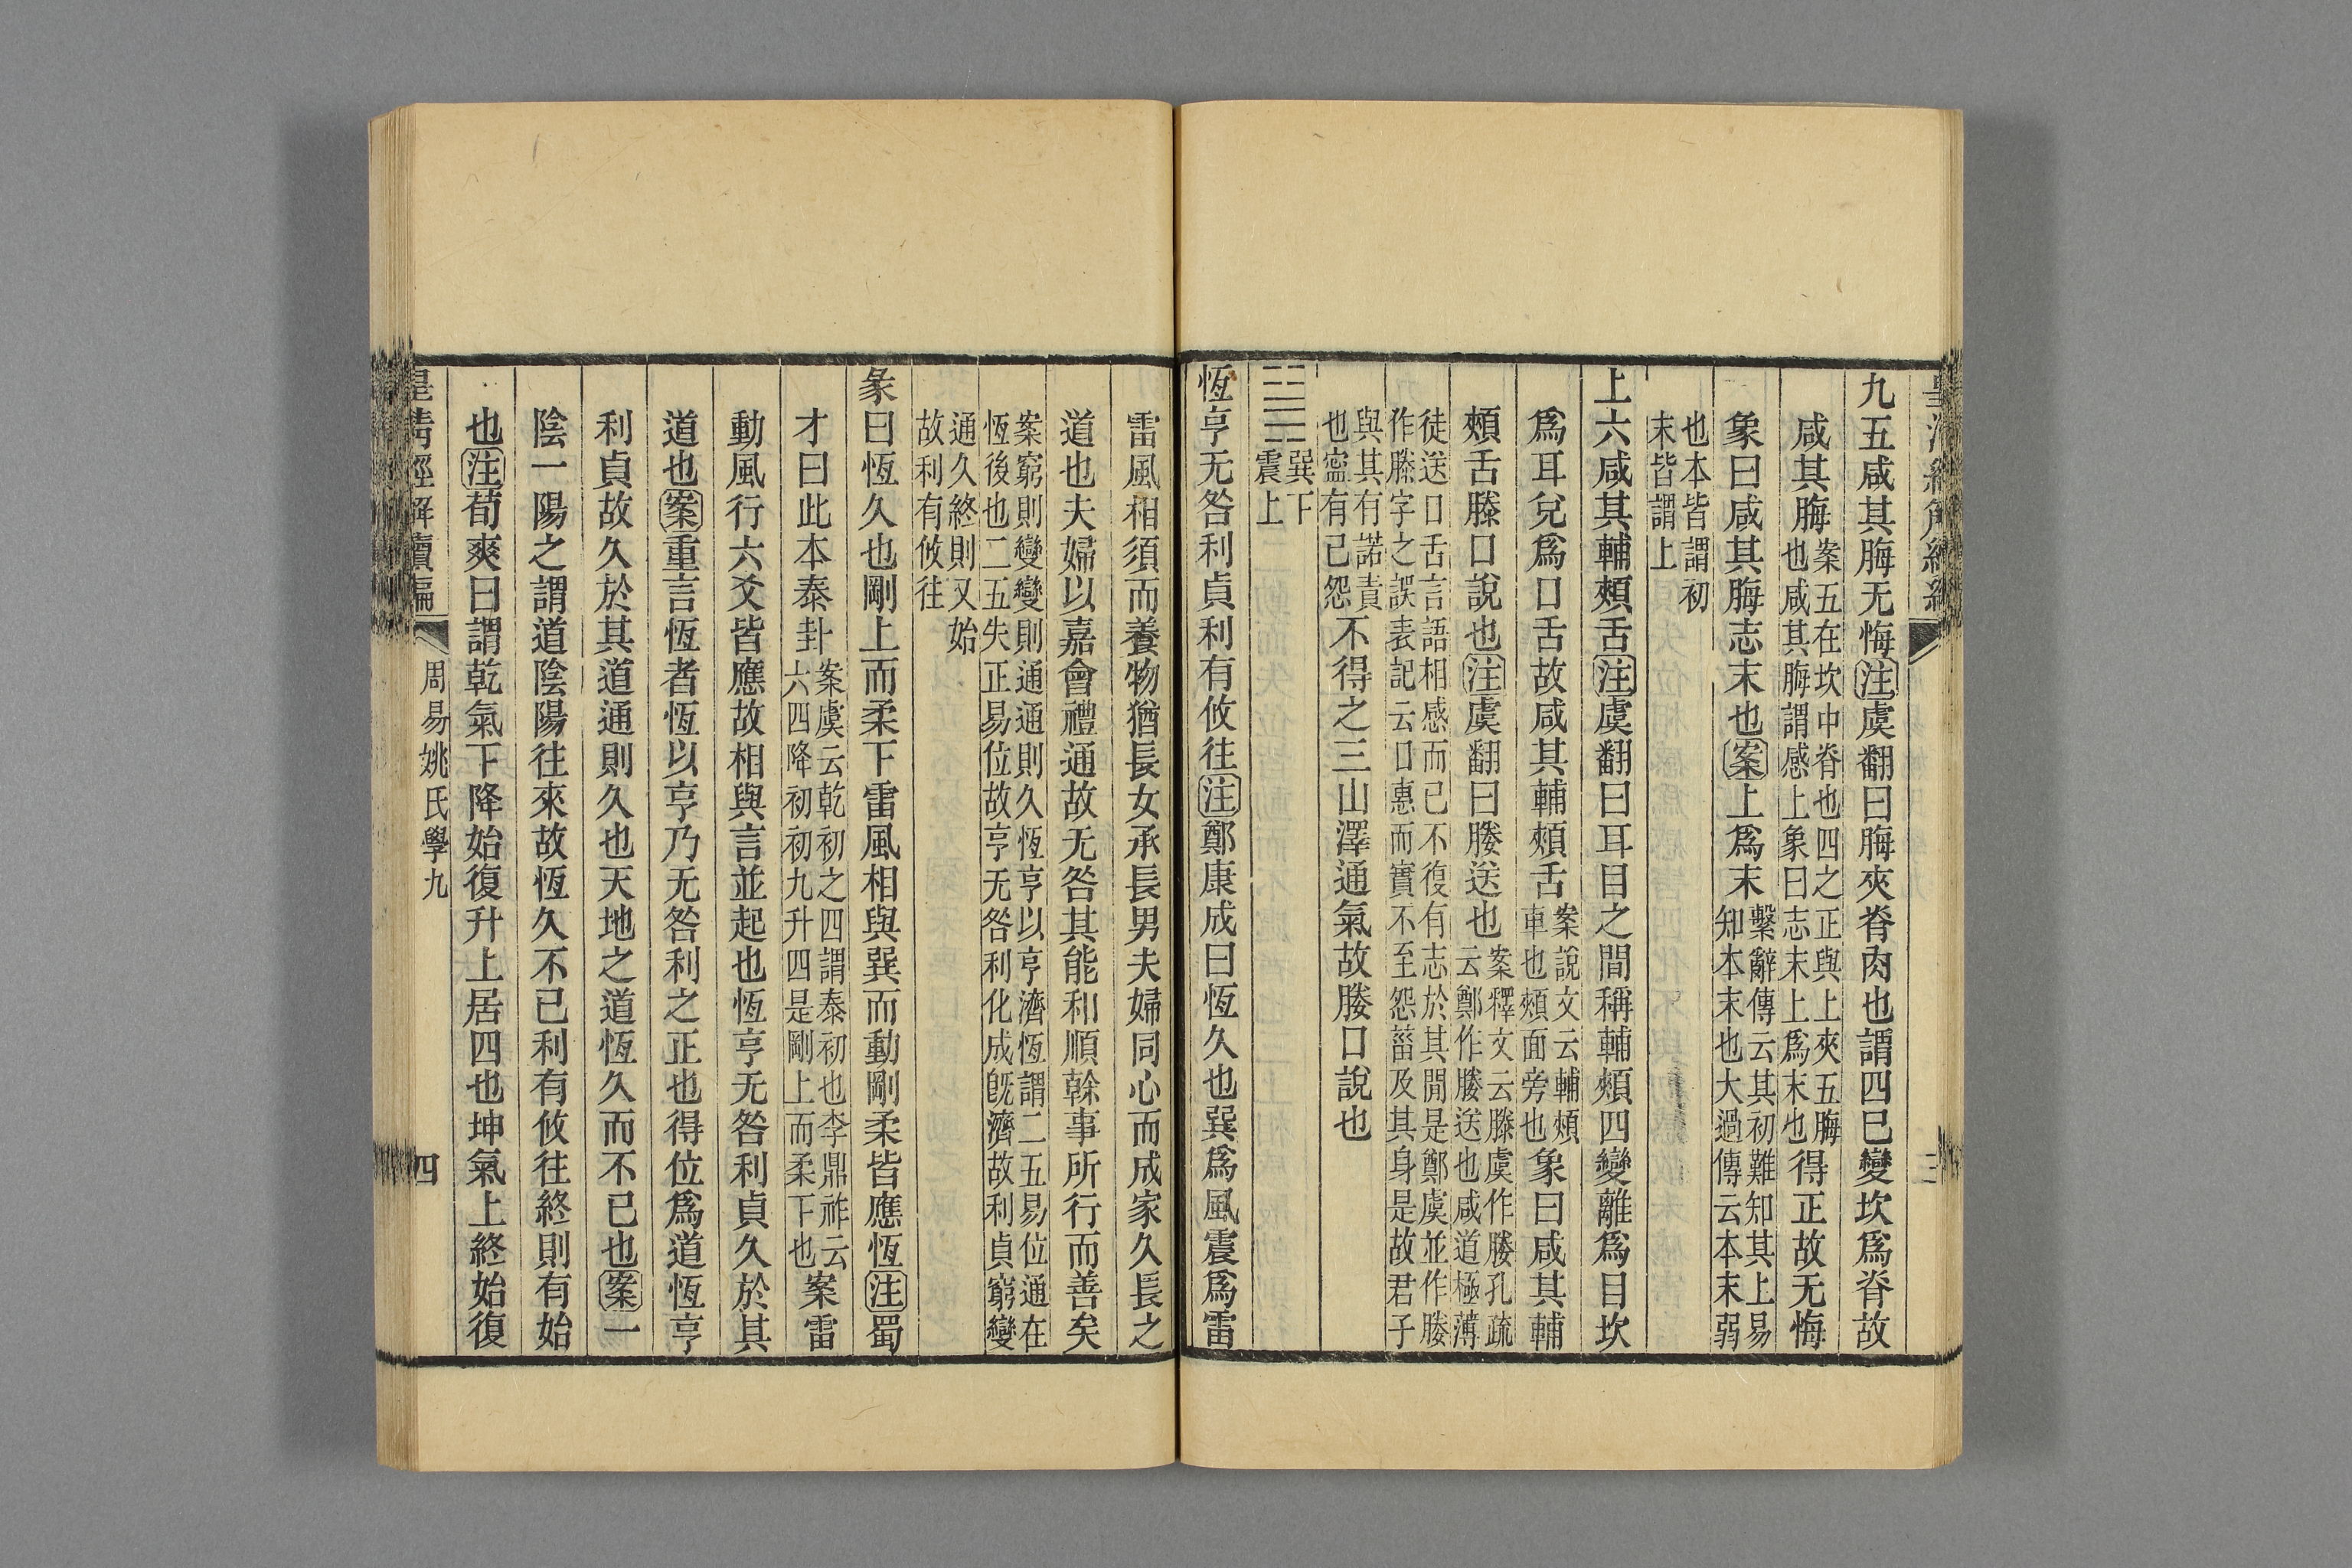 九五咸其脢无悔注虞翻曰脢夾脊肉也謂四已變坎爲脊故
咸其脢案五在坎中脊也四之正與上夾五脢也咸其脢謂感上象曰志末上爲末也得正故无悔
象曰咸其脢志末也案上爲末繫辭傳云其初難知其上易知本末也大過傳云本末弱
也本皆謂初末皆謂上
上六咸其輔頰舌注虞翻曰耳目之間稱輔頰四變離爲目坎
爲耳兌爲口舌故咸其輔頰舌案說文云輔頰車也頰面旁也象曰咸其輔
頰舌滕口說也注虞翻曰媵送也案釋文云滕虞作媵孔疏云鄭作媵送也咸道極薄
徒送口舌言語相感而已不復有志於其閒是鄭虞並作媵作滕字之誤表記云口惠而實不至怨菑及其身是故君子
與其有諾責也寍有已怨不得之三山澤通氣故媵口說也
巽下震上
恆亨无咎利貞利有攸往注鄭康成曰恆久也巽爲風震爲雷
雷風相須而養物猶長女承長男夫婦同心而成家久長之
道也夫婦以嘉會禮通故无咎其能和順榦事所行而善矣
案窮則變變則通通則久恆亨以亨濟恆謂二五易位通在恆後也二五失正易位故亨无咎利化成旣濟故利貞窮變
通久終則又始故利有攸往
彖曰恆久也剛上而柔下雷風相與巽而動剛柔皆應恆注蜀
才曰此本泰卦案虞云乾初之四謂泰初也李鼎祚云六四降初初九升四是剛上而柔下也案雷
動風行六爻皆應故相與言並起也恆亨无咎利貞久於其
道也案重言恆者恆以亨乃无咎利之正也得位爲道恆亨
利貞故久於其道通則久也天地之道恆久而不已也案一
陰一陽之謂道陰陽往來故恆久不已利有攸往終則有始
也注荀爽曰謂乾氣下降始復升上居四也坤氣上終始復
皇清經解續編
周易姚氏學九
四